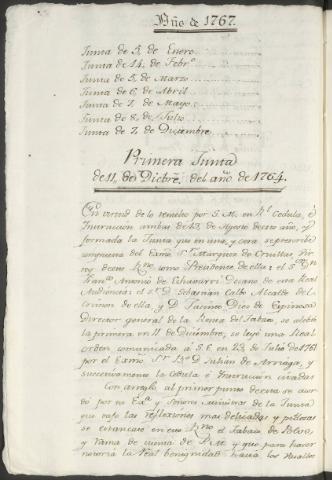 Año de 1767.
Junta de 5. de Enero
Junta de 14. de Febrº
Junta de 5. de Marzo
Junta de 6. de Abril
Junta de 7. de Mayo
Junta de 8. de Julio
Junta de 7. de Diciembre
Primera Junta
de 11, de Dicbre, del año de 1764.
En virtud de lo resuelto por S.M. en Rl. Cedula, é
Instruccion ambas de 13, de Agosto de este año, y
formada la Junta que en una, y otra se prescribe
compuesta del Exmo Sr. Marques de Cruillas, Vi-
rrey de este Rno como Presidente de ella: el Sr. Dn
Franco Antonio de Echavarri Decano de esta Real
Audiencia: el Sr. Dn Sebastian Calvo Alcalde del
Crimen de ella, y Dn Jacinto Dies de Espinosa
Director general de la Renta del Tabaco, se celebró
la primera en 11 de Diciembre, se leyó una Real
orden comunicada á S.E. en 23, de Julio de 1761
por el Exmo Sr. Bº Dn Julian de Arriaga, y
succesivamente la Cedula é Instruccion citadas
Con arreglo al primer punto de esta se acor-
dó por su Exª y Señores Ministros de la Junta
que bajo las reflexiones mas delicadas y piadosas
se estancase en este Rno el Tabaco de Polvo,
y Rama de cuenta de S.M. y que para hacer
notoria la Real benignidad hacia los Vasallos